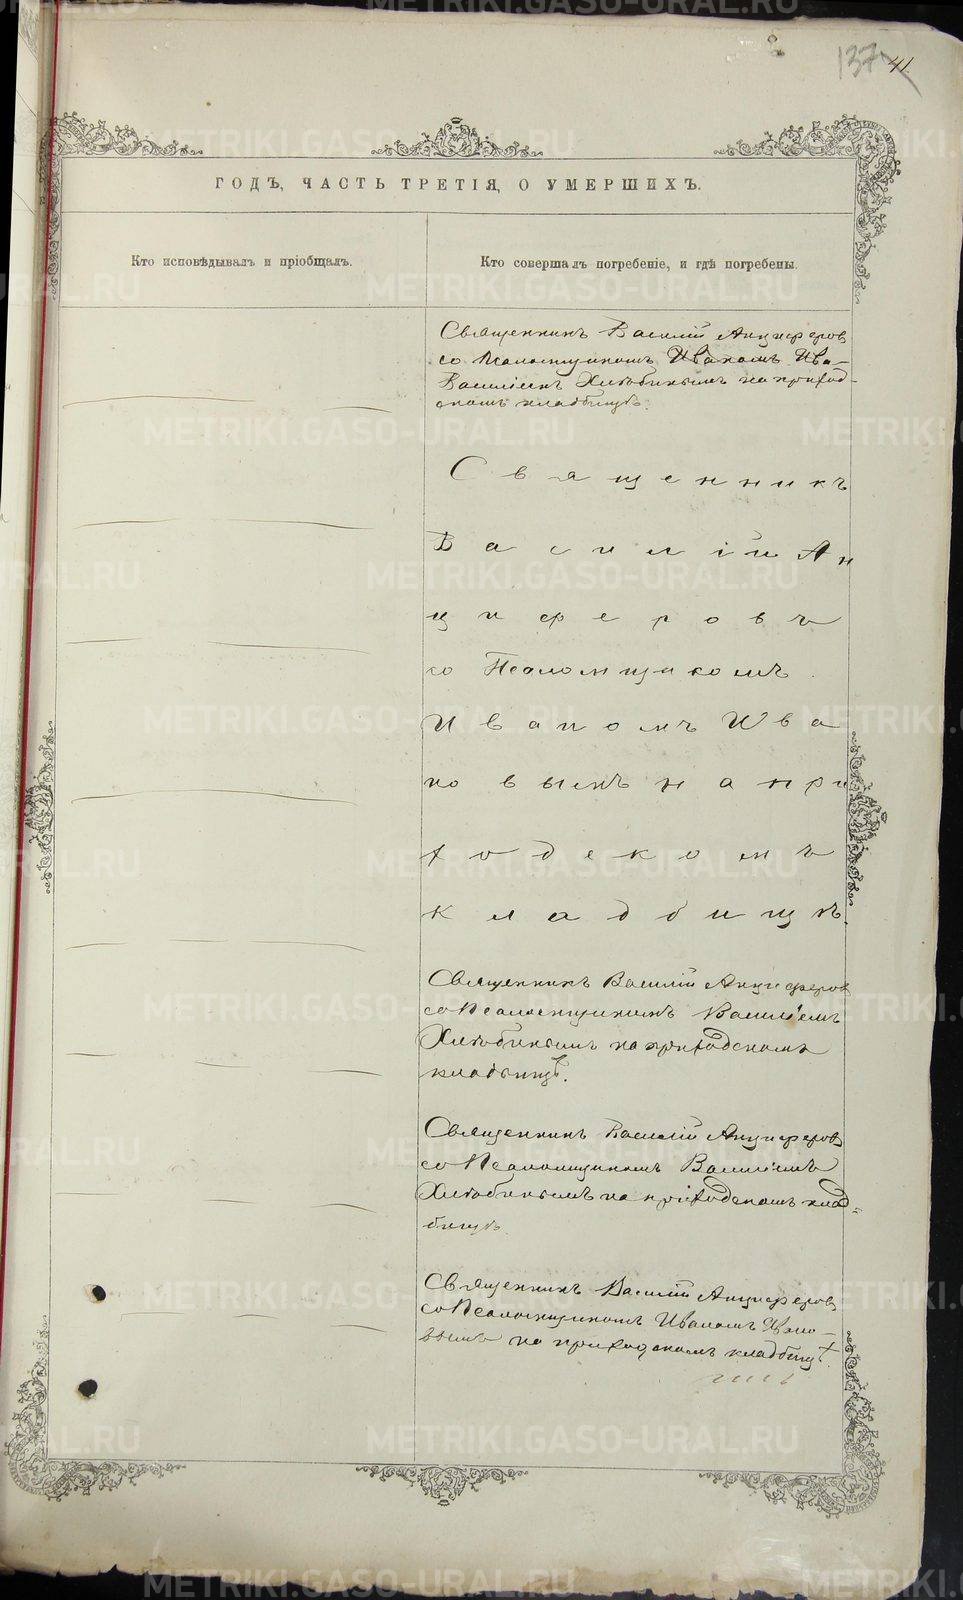 137 41
ГОДЪ, ЧАСТЬ ТРЕТІЯ, О УМЕРШИХЪ.
Кто исповѣдывалъ и пріобщалъ.
Кто совершалъ погребеніе, и гдѣ погребены.
Священникъ Василій Анциферов
со Псаломщикомъ Иваномъ Ива-
Василіемъ Хлѣбинымъ на приход-
скомъ кладбищѣ.
Священникъ
Василій Ан
циферовъ
со Псаломщикомъ
Иваномъ Ива
новымъ на при
ходскомъ
кладбищѣ.
Священникъ Василій Анциферов
со Псаломщикомъ Василіемъ
Хлѣбинымъ на приходскомъ
кладбищѣ.
Священникъ Василій Анциферов
со Псаломщикомъ Василіемъ
Хлѣбинымъ на приходскомъ клад=
бищѣ.
Священникъ Василій Анциферов
со Псаломщикомъ Иваномъ Ивано-
вымъ на приходскомъ кладбищѣ.
METRIKI.GASO-URAL.RU